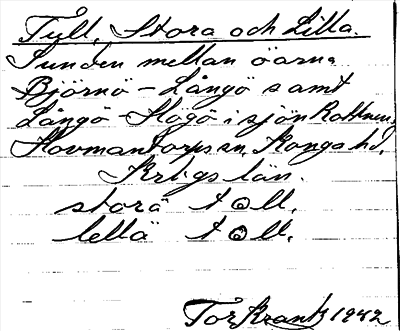 Tyll, Stora och Lilla.
Sunden mellan öarna
Björnö - Långö samt
Långö - Högö i sjön Rottnen,
Hovmantorps sn, Konga hd,
Krbgs län.
storа toll,
lella toll.
Tor Krantz 1942